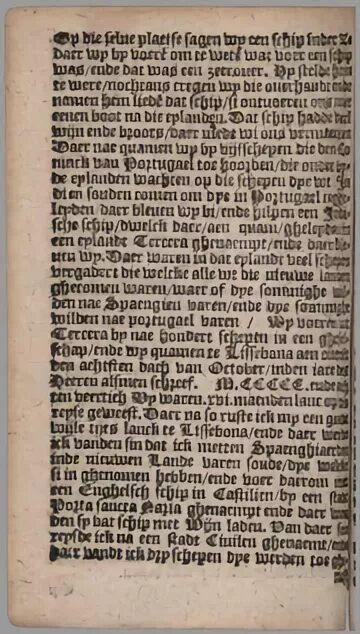 Op die selue plaetse sagen wy een schip inder
daer wy by voerē om te wetē wat voer een schip
was/ende dat was een zeeroouer. Hy stelde hem
te were/nochtans cregen wy die ouerhandt ende
namen hem liedē dat schip/si ontuoeren ons met
eenen boot na die eylanden. Dat schip hadde veel
wijn ende broots/daer mede wi ons vermaecten
Daer nae quamen wy by vijfschepen die den Co
ninck van Portugael toe hoorden/die onder by
de eylanden wachten op die schepen dye wt In
dien souden comen om dye in Portugael te ge
leyden daer bleuen wy bi/ende hilpen een Indi
sche schip/dwelck daer/aen quam/gheleyden
een eylande Tercera ghenaemt/ende daer ble
uen wy. Daer waren in dat eylandt veel schepen
vergadert die welcke alle wt die nieuwe landen
ghecomen waren/waer of dye sommighe wil
den nae Spaengien varen/ende dye sommighe
wilden nae portugael varen / Wy voeren
Tercera by nae hondert schepen in een ghesel
schap/ende wy quamen te Lissebona aen ontrent
den achtsten dach van October/inden iare des
Heeren alsmen schreef. M.CCCCC. ende
en veertich Wy waren .xvi. maenden lanc
reyse geweest. Daer na so ruste ick my een goede
wijle tijts lanck te Lissebona/ende daer werdt
ick vanden sin dat ick metten Spaenghiaerden
inde nieuwen Lande varen soude/dye welcke
si in ghenomen hebben/ende voer daerom met
een Enghelsch schip in Castilien/by een stadt
Porta sancta Maria ghenaemt ende daer wou
den sy dat schip met Wijn laden. Van daer so
reysde ick na een stadt Ciuilen ghenaemt/ende
daer vandt ick dry schepen dye werden toe